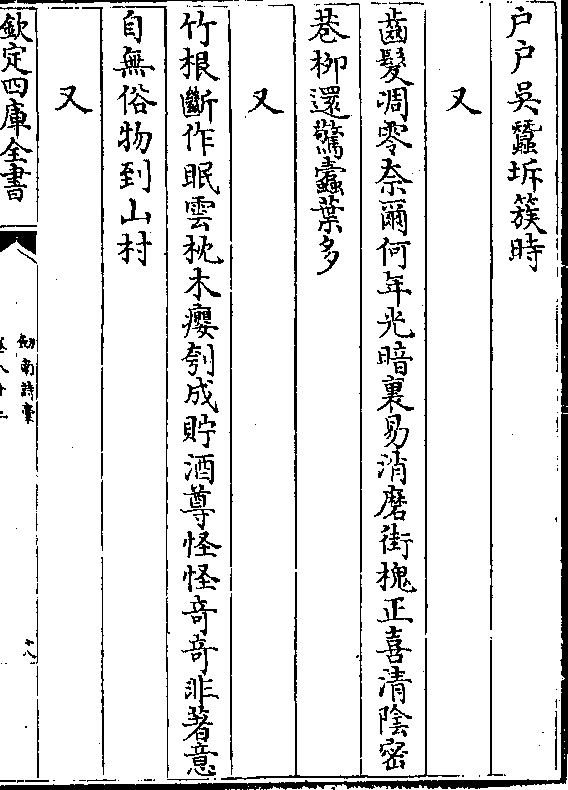 户户吳蠶坼簇時
又
齒髮凋零奈爾何年光暗裏易消磨街槐正喜清陰密
巷柳還驚蠧葉多
又
竹根斷作眠雲枕木癭刳成貯酒尊怪怪奇奇非著意
自無俗物到山村
又
欽定四庫全書
劍南詩槀
卷八十二
十八